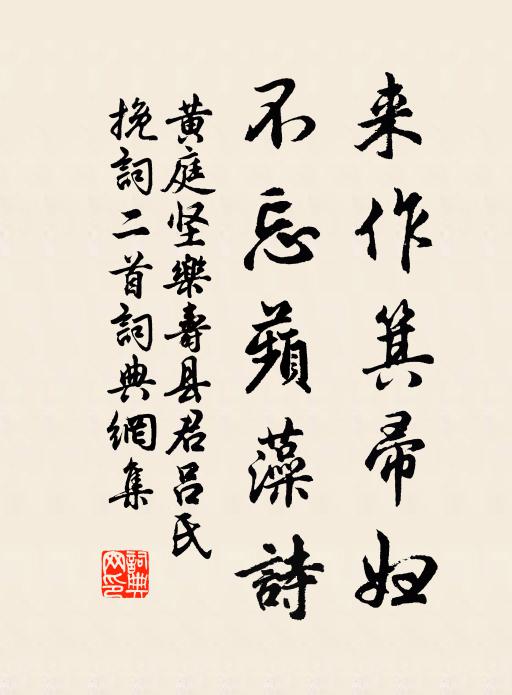 来作箕帚妇
不忘蘋藻詩
黄庭坚樂壽县君吕氏
挽詞二首詞典網集
詞典网印